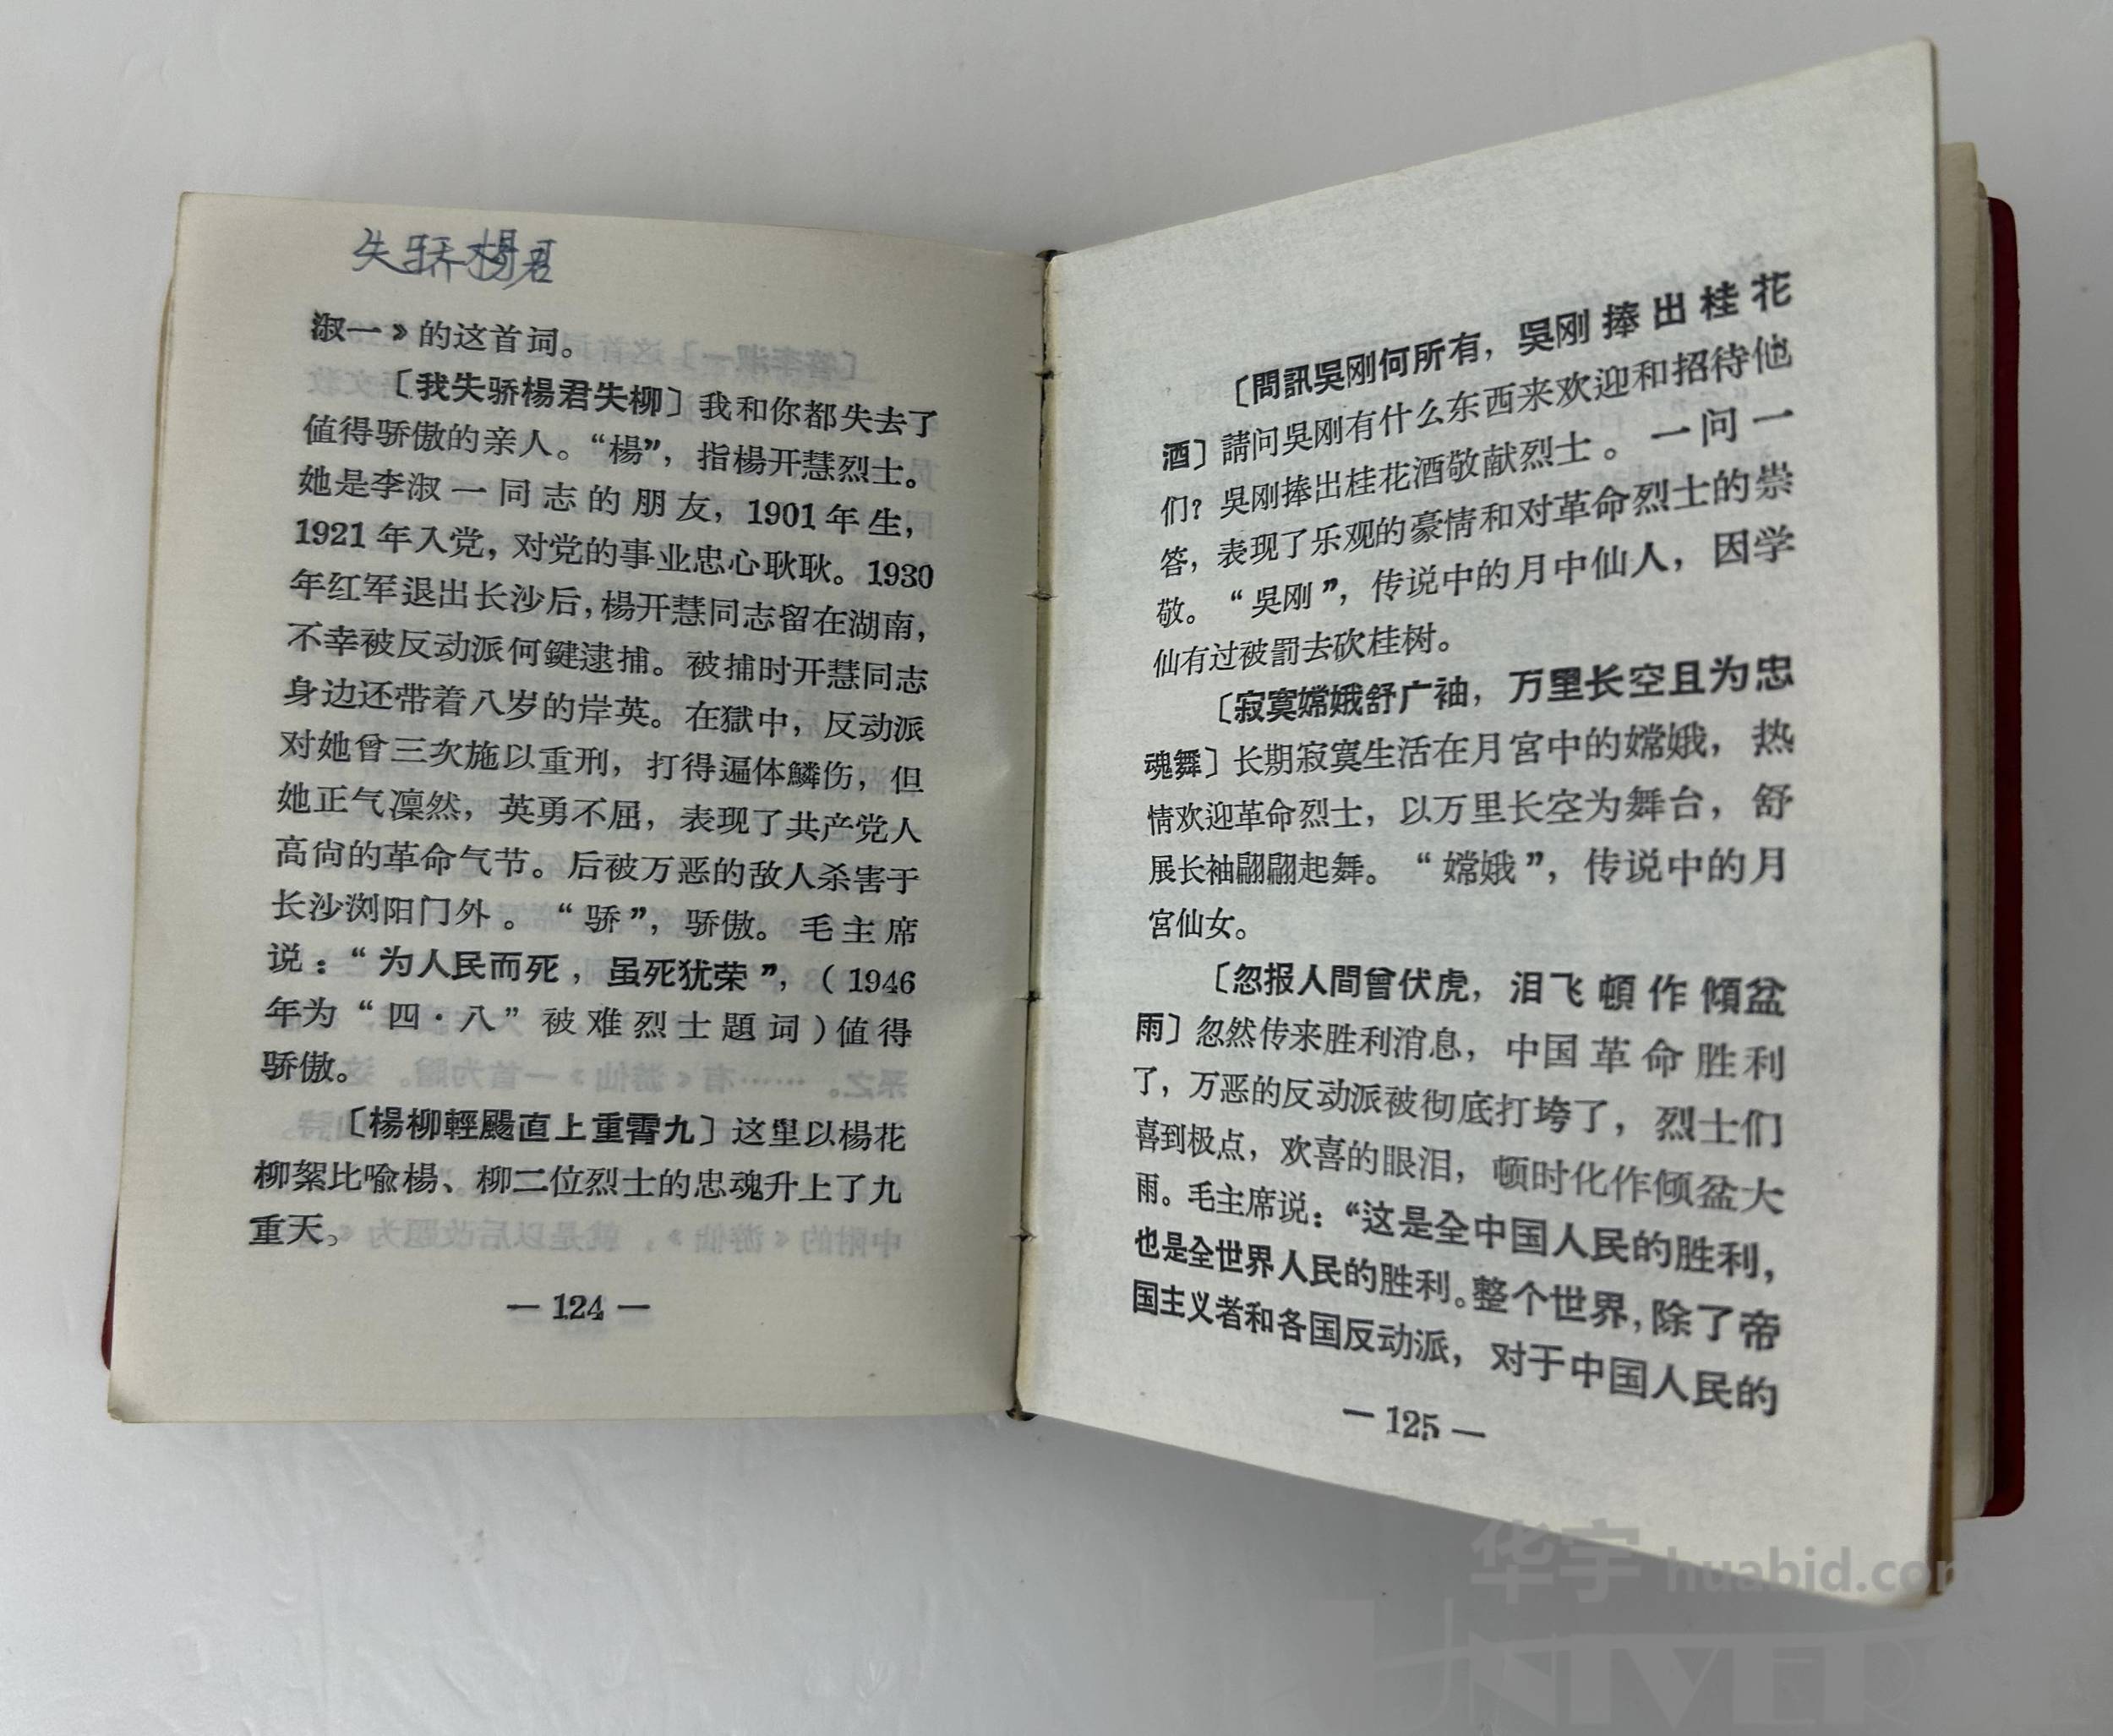 失骄楊君
淑一》的这首词。
〔我失骄楊君失柳〕我和你都失去了
值得骄傲的亲人。“楊”，指楊开慧烈士。
她是李淑一同志的朋友，1901年生，
1921年入党，对党的事业忠心耿耿。1930
年红军退出长沙后，楊开慧同志留在湖南，
不幸被反动派何鍵逮捕。被捕时开慧同志
身边还带着八岁的岸英。在獄中，反动派
对她曾三次施以重刑，打得遍体鱗伤，但
她正气凜然，英勇不屈，表现了共产党人
高尚的革命气节。后被万恶的敌人杀害于
长沙浏阳门外。“骄”，骄傲。毛主席
说：“为人民而死，虽死犹荣”，（1946
年为“四·八”被难烈士題词）值得
骄傲。
〔楊柳輕颺直上重霄九〕这里以楊花
柳絮比喻楊、柳二位烈士的忠魂升上了九
重天。
— 124 —
〔問訊吳刚何所有，吳刚捧出桂花
酒〕請问吳刚有什么东西来欢迎和招待他
们？吳刚捧出桂花酒敬献烈士。一问一
答，表现了乐观的豪情和对革命烈士的崇
敬。“吳刚”，传说中的月中仙人，因学
仙有过被罰去砍桂树。
〔寂寞嫦娥舒广袖，万里长空且为忠
魂舞〕长期寂寞生活在月宮中的嫦娥，热
情欢迎革命烈士，以万里长空为舞台，舒
展长袖翩翩起舞。“嫦娥”，传说中的月
宮仙女。
〔忽报人間曾伏虎，泪飞頓作傾盆
雨〕忽然传来胜利消息，中国革命胜利
了，万恶的反动派被彻底打垮了，烈士们
喜到极点，欢喜的眼泪，顿时化作倾盆大
雨。毛主席说：“这是全中国人民的胜利，
也是全世界人民的胜利。整个世界，除了帝
国主义者和各国反动派，对于中国人民的
— 125 —
华宇 huabid.com
UNIVERS